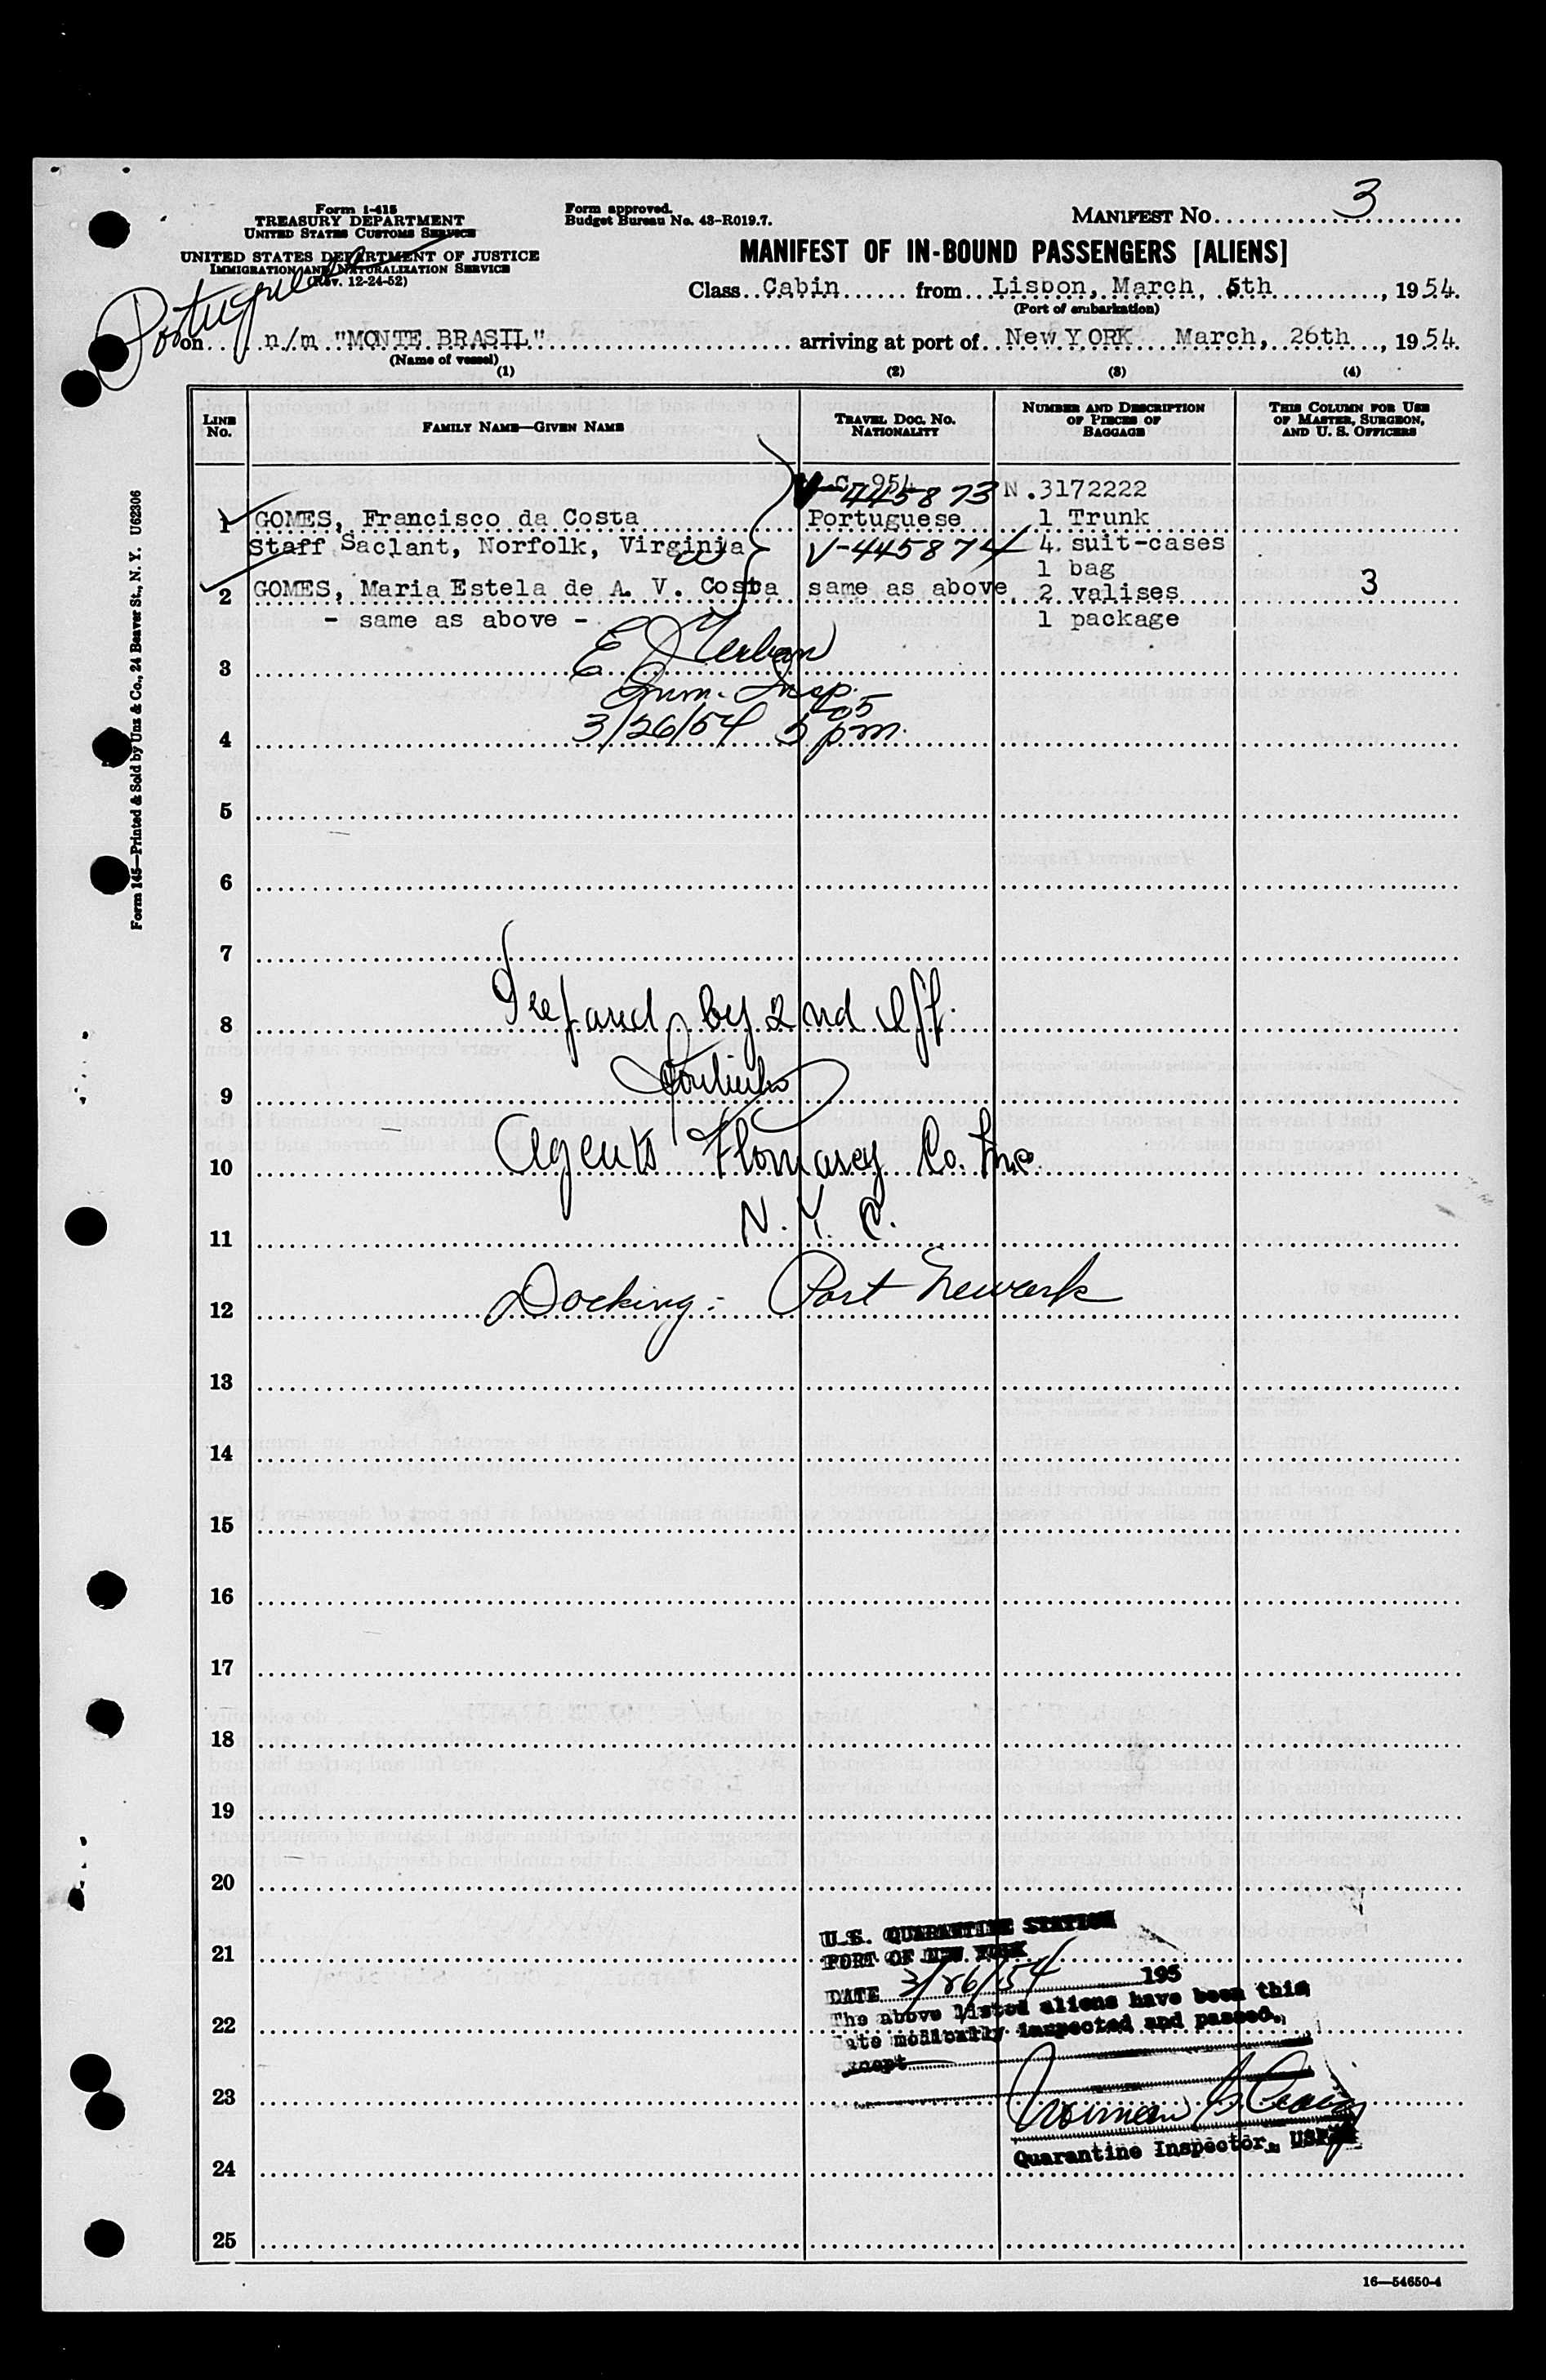 Form I-415
TREASURY DEPARTMENT
UNITED STATES CUSTOMS SERVICE
UNITED STATES DEPARTMENT OF JUSTICE
IMMIGRATION AND NATURALIZATION SERVICE
(Rev. 12-24-52)
Form approved.
Budget Bureau No. 43-R019.7.
MANIFEST NO. 3
MANIFEST OF IN-BOUND PASSENGERS [ALIENS]
Class Cabin from Lisbon, March, 5th, 1954.
(Port of embarkation)
Portuguese
on n/m "MONTE BRASIL" arriving at port of New YORK March, 26th, 1954.
(Name of vessel)
(1) (2) (3) (4)
LINE NO.
FAMILY NAME—GIVEN NAME
TRAVEL DOC. NO. NATIONALITY
NUMBER AND DESCRIPTION OF PIECES OF BAGGAGE
THIS COLUMN FOR USE OF MASTER, SURGEON, AND U. S. OFFICERS
954
V-445873 N.3172222
1 GOMES, Francisco da Costa Portuguese 1 Trunk
Staff Saclant, Norfolk, Virginia V-445874 4. suit-cases
1 bag
2 GOMES, Maria Estela de A. V. Costa same as above. 2 valises 3
- same as above - 1 package
3 E
Imm. Insp.
705
4 3/26/54 5 pm.
5
6
7
8 Prepared by 2nd Off.
9
10 Agents Flomarcy Co. Inc.
11 N. Y. C.
12 Docking: Port Newark
13
14
15
16
17
18
19
20
U.S. QUARANTINE STATION
21 PORT OF NEW YORK
DATE 3/26/54 195
The above listed aliens have been this
22 date medically inspected and passed.
except
23 Norman
Quarantine Inspector,
24
25
16—54650-4
Form 145—Printed & Sold by Unz & Co., 24 Beaver St., N. Y. U62306